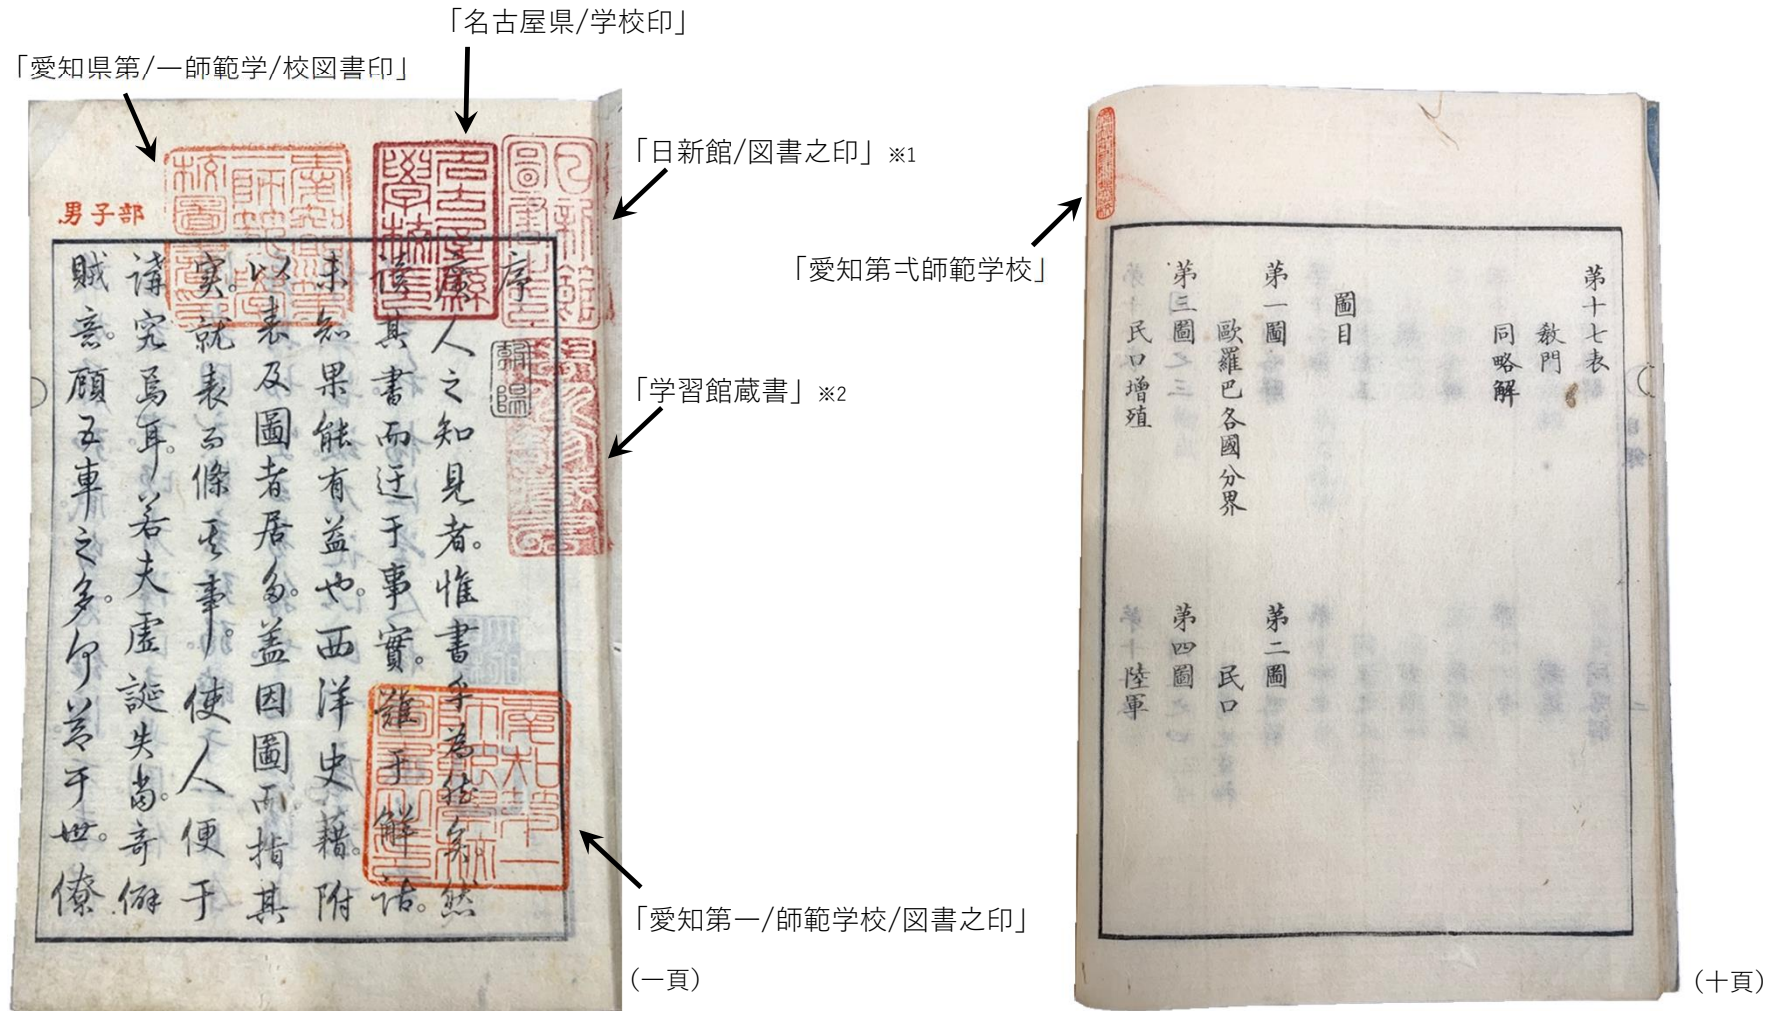 「名古屋県/学校印」
「愛知県第/一師範学/校図書印」
「日新館/図書之印」※1
「学習館蔵書」※2
「愛知第一/師範学校/図書之印」
(一頁)
男子部
序
廣人之知見者。惟書乎為矣。然
讀其書而迂于事實。難于解詁。
未知果能有益也。西洋史藉。附
以表及圖者居多。盖因圖而指其
実。就表而條其事。使人便于
講究焉耳。若夫虛誕失當。奇僻
賊意。顧五車之多。何益于世。僚
「愛知第弌師範学校」
第十七表
教門
同略解
圖目
第一圖 第二圖
歐羅巴各國分界 民口
第三圖 第四圖
民口增殖 陸軍
(十頁)